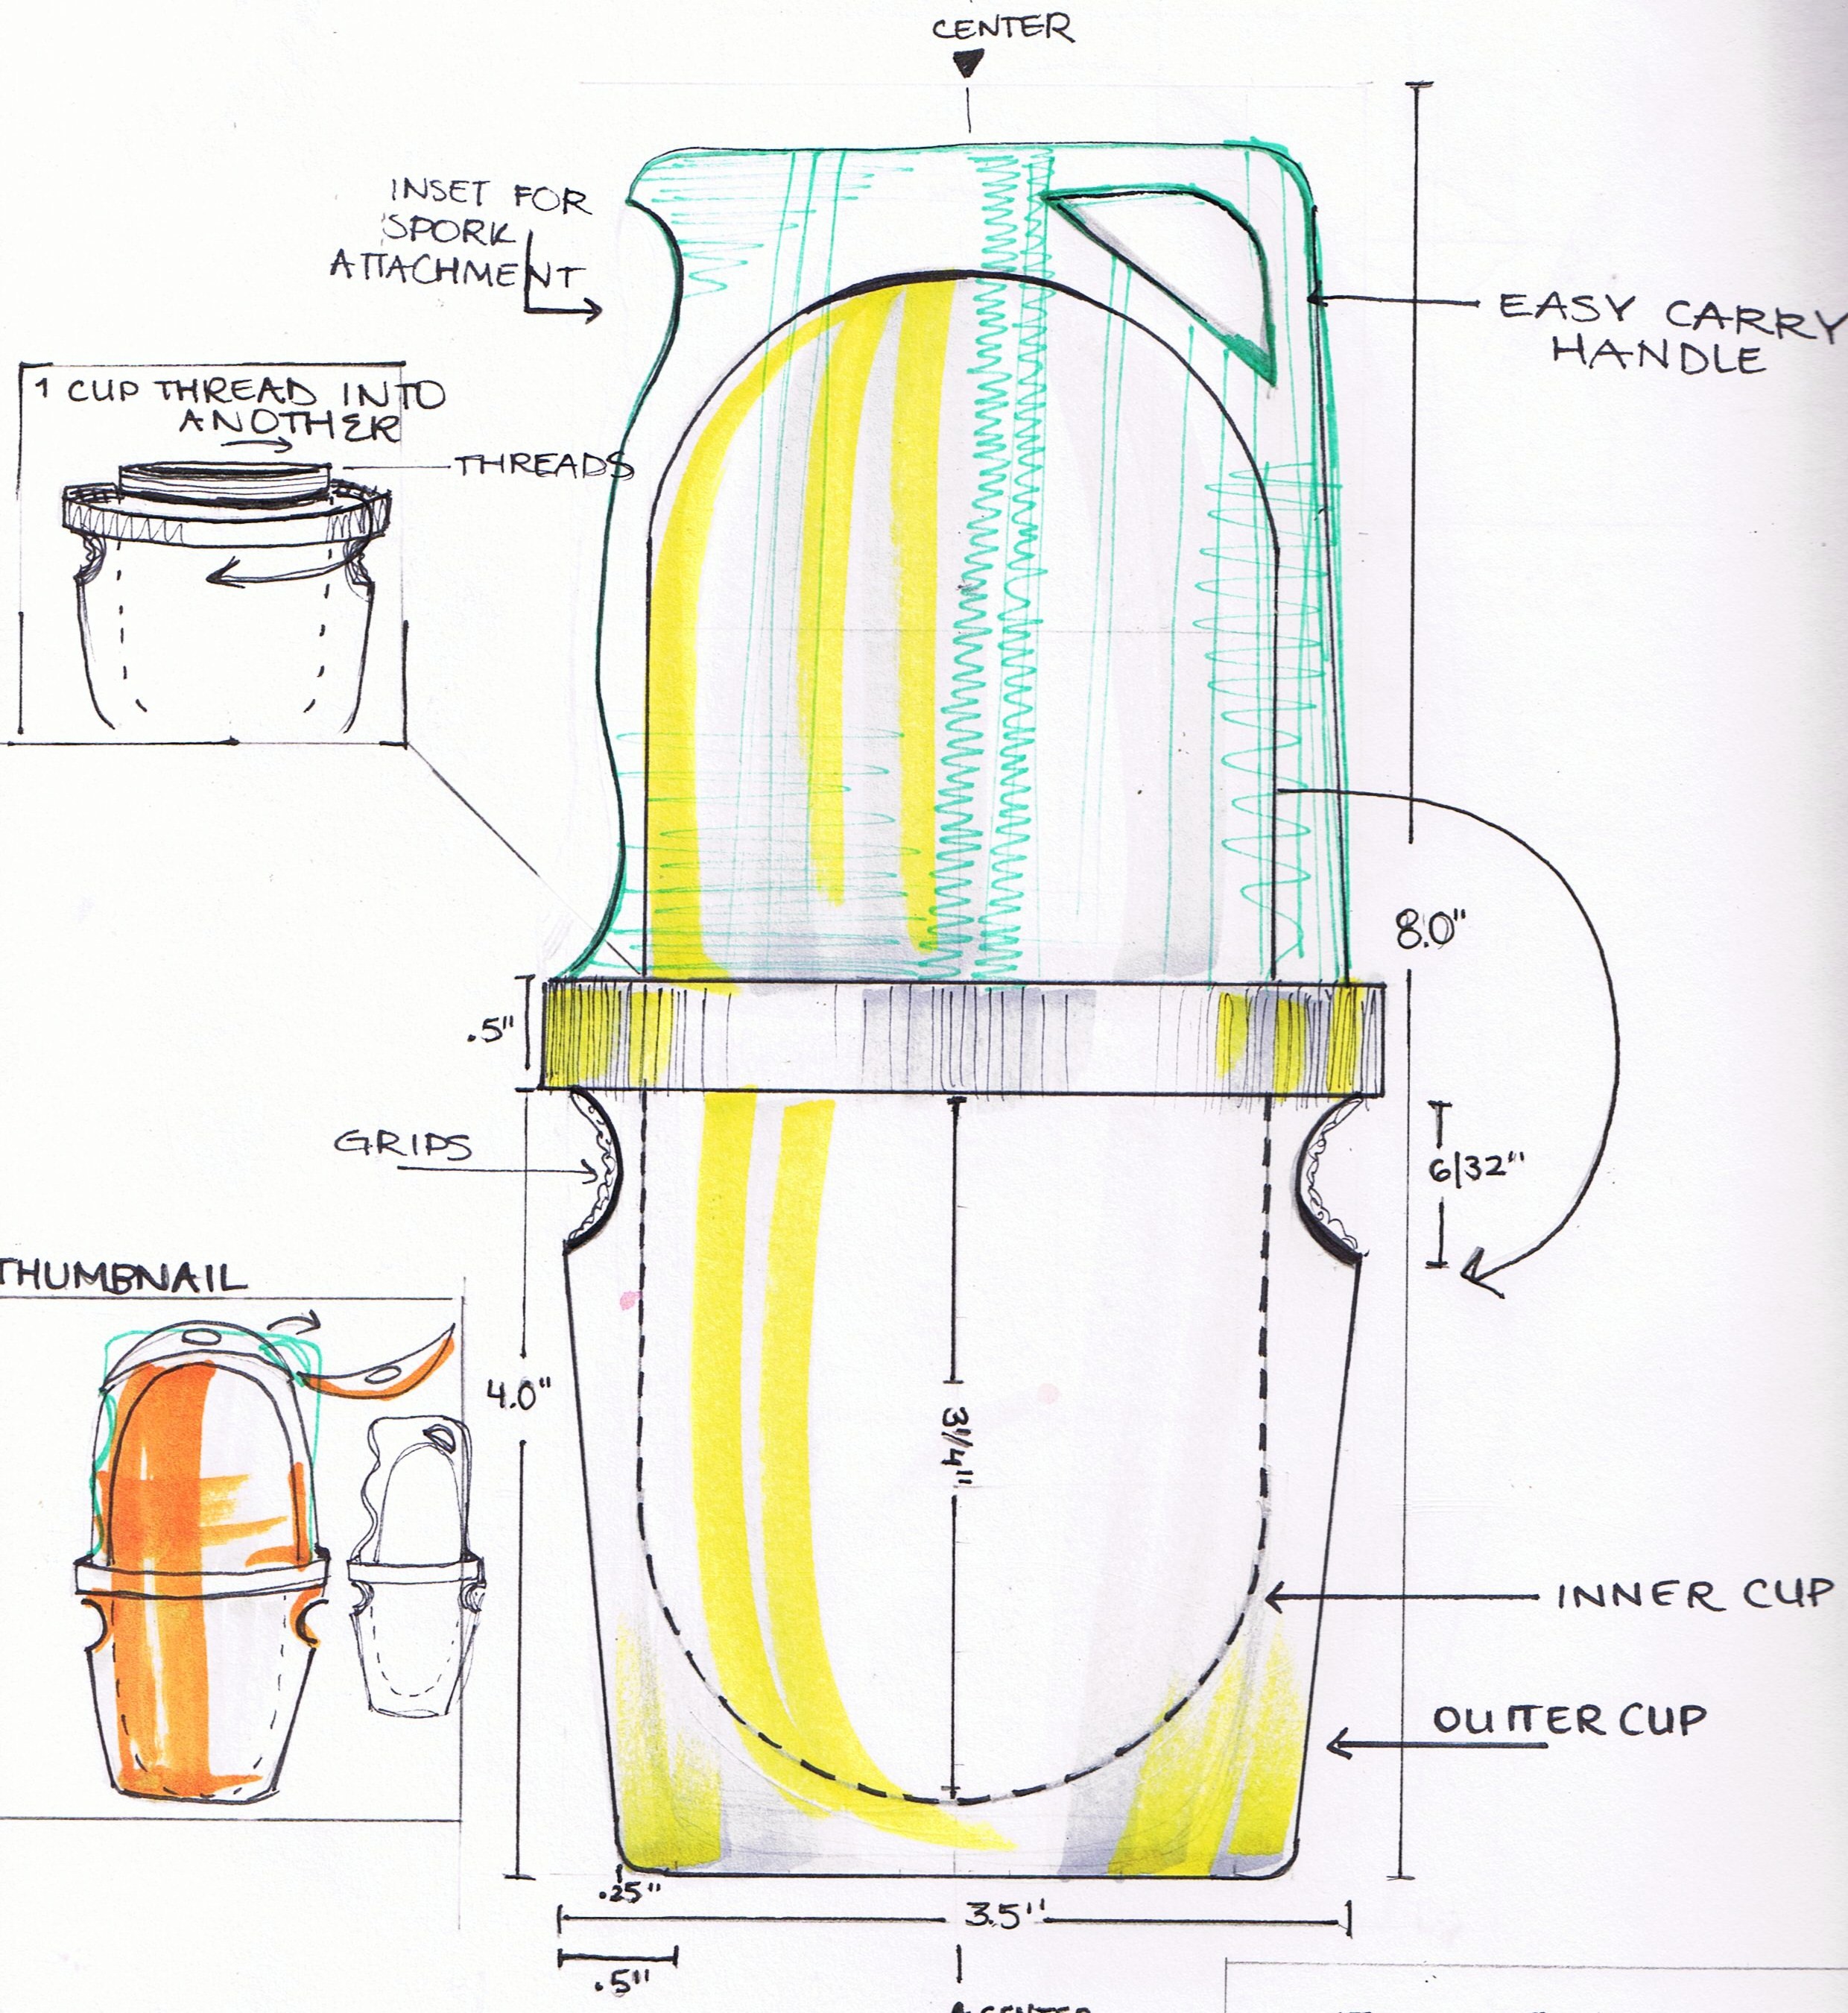 CENTER
INSET FOR
SPORK
ATTACHMENT
EASY CARRY
HANDLE
1 CUP THREAD INTO
ANOTHER
THREADS
8.0"
.5"
GRIPS
6/32"
THUMBNAIL
4.0"
3¼"
INNER CUP
OUTTER CUP
.25"
3.5"
.5"
CENTER